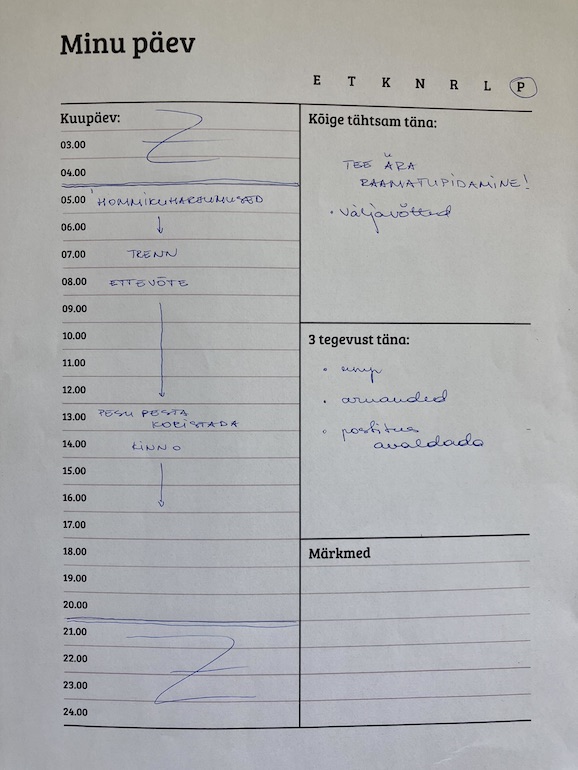 Minu päev
E T K N R L P
Kuupäev:
03.00
04.00
05.00 HOMMIKUHARJUMUSED
06.00
07.00 TRENN
08.00 ETTEVÕTE
09.00
10.00
11.00
12.00
13.00 PESU PESTA
KORISTADA
14.00 KINNO
15.00
16.00
17.00
18.00
19.00
20.00
21.00
22.00
23.00
24.00
Kõige tähtsam täna:
TEE ÄRA
RAAMATUPIDAMINE!
• väljavõtted
3 tegevust täna:
• aruanded
• postitus
avaldada
Märkmed